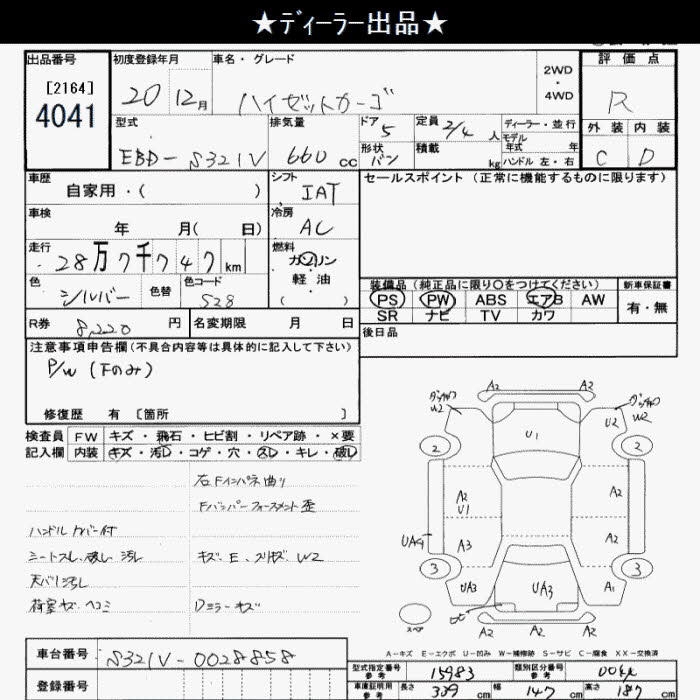 ★ディーラー出品★
出品番号
[2164]
4041
初度登録年月
20 12月
車名・グレード
ハイゼットカーゴ
2WD
・
4WD
評価点
R
外装 内装
C D
型式
EBD-S321V
排気量
660 cc
ドア
5
形状
バン
定員 2/4 人
積載 kg
ディーラー・並行
モデル
年式 年
ハンドル 左・右
車歴
自家用・( )
シフト
IAT
セールスポイント(正常に機能するものに限ります)
車検
年 月( 日)
冷房
AC
走行
28万7千747 km
燃料
ガソリン
軽油
( )
色
シルバー
色替
色コード
S28
装備品(純正品に限り○をつけてください)
PS PW ABS エアB AW
SR ナビ TV カワ
新車保証書
有・無
R券 8,220 円
名変期限 月 日
後日品
注意事項申告欄(不具合内容等は具体的に記入して下さい)
P/W(Fのみ)
修復歴 有 [箇所 ]
検査員 FW キズ・飛石・ヒビ割・リペア跡・×要
記入欄 内装 キズ・汚レ・コゲ・穴・スレ・キレ・破レ
右Fインパネ曲り
Fバンパーフォースメント歪
ハンドルカバー付
シートスレ、破レ、汚レ
キズ、E、スリキズ、W2
天バリ汚レ
荷室キズ・ヘコミ
Dミラーキズ
A2 A2
W2
U1
U2 W2
2 2
A2
U1
A2
UA4
A3
A2
3 3
UA3
UA3
A1
スペア
A2 A2 A2
A-キズ E-エクボ U-凹み W-補修跡 S-サビ C-腐食 XX-交換済
車台番号 S321V-0028858
登録番号
型式指定番号
参考
15983
類別区分番号
参考
車庫証明用
参考
長さ 339 cm
幅 147 cm
高さ 187 cm